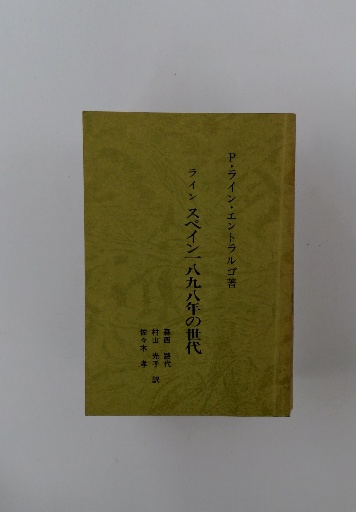 P・ライン・エントラルゴ著
ライン スペイン一八九八年の世代
森西 路代
村山 光子 訳
佐々木 孝